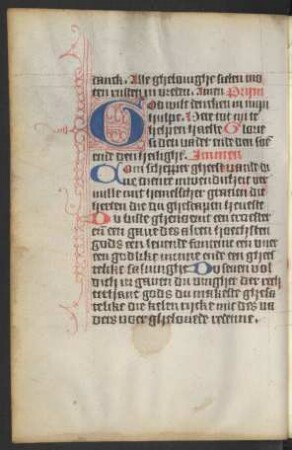 danck. Alle ghelovighe sielen mo
ten rusten in vreden. Amen Prim
God wilt dencken in mijn
hulpe. Here tot mi te
helpen haeste Glorie
si den vader ende den soē
ende den heilighē. Immen
Com schepper gheest
dijnre menschen
mitter hemelscher gracien die
herten die du ghescapen heveste
Du biste ghenoemt een troester
een gave des alren hoechsten
gods een levende fonteine een vuer
een godlike minne ende een gheeste
telike salvinghe Du seven vol
dich in gaven du vingher der rech
terhant gods du makeste ghesa
telike die kelen rijcke mit des va
ders uwer ghelovede redenne.